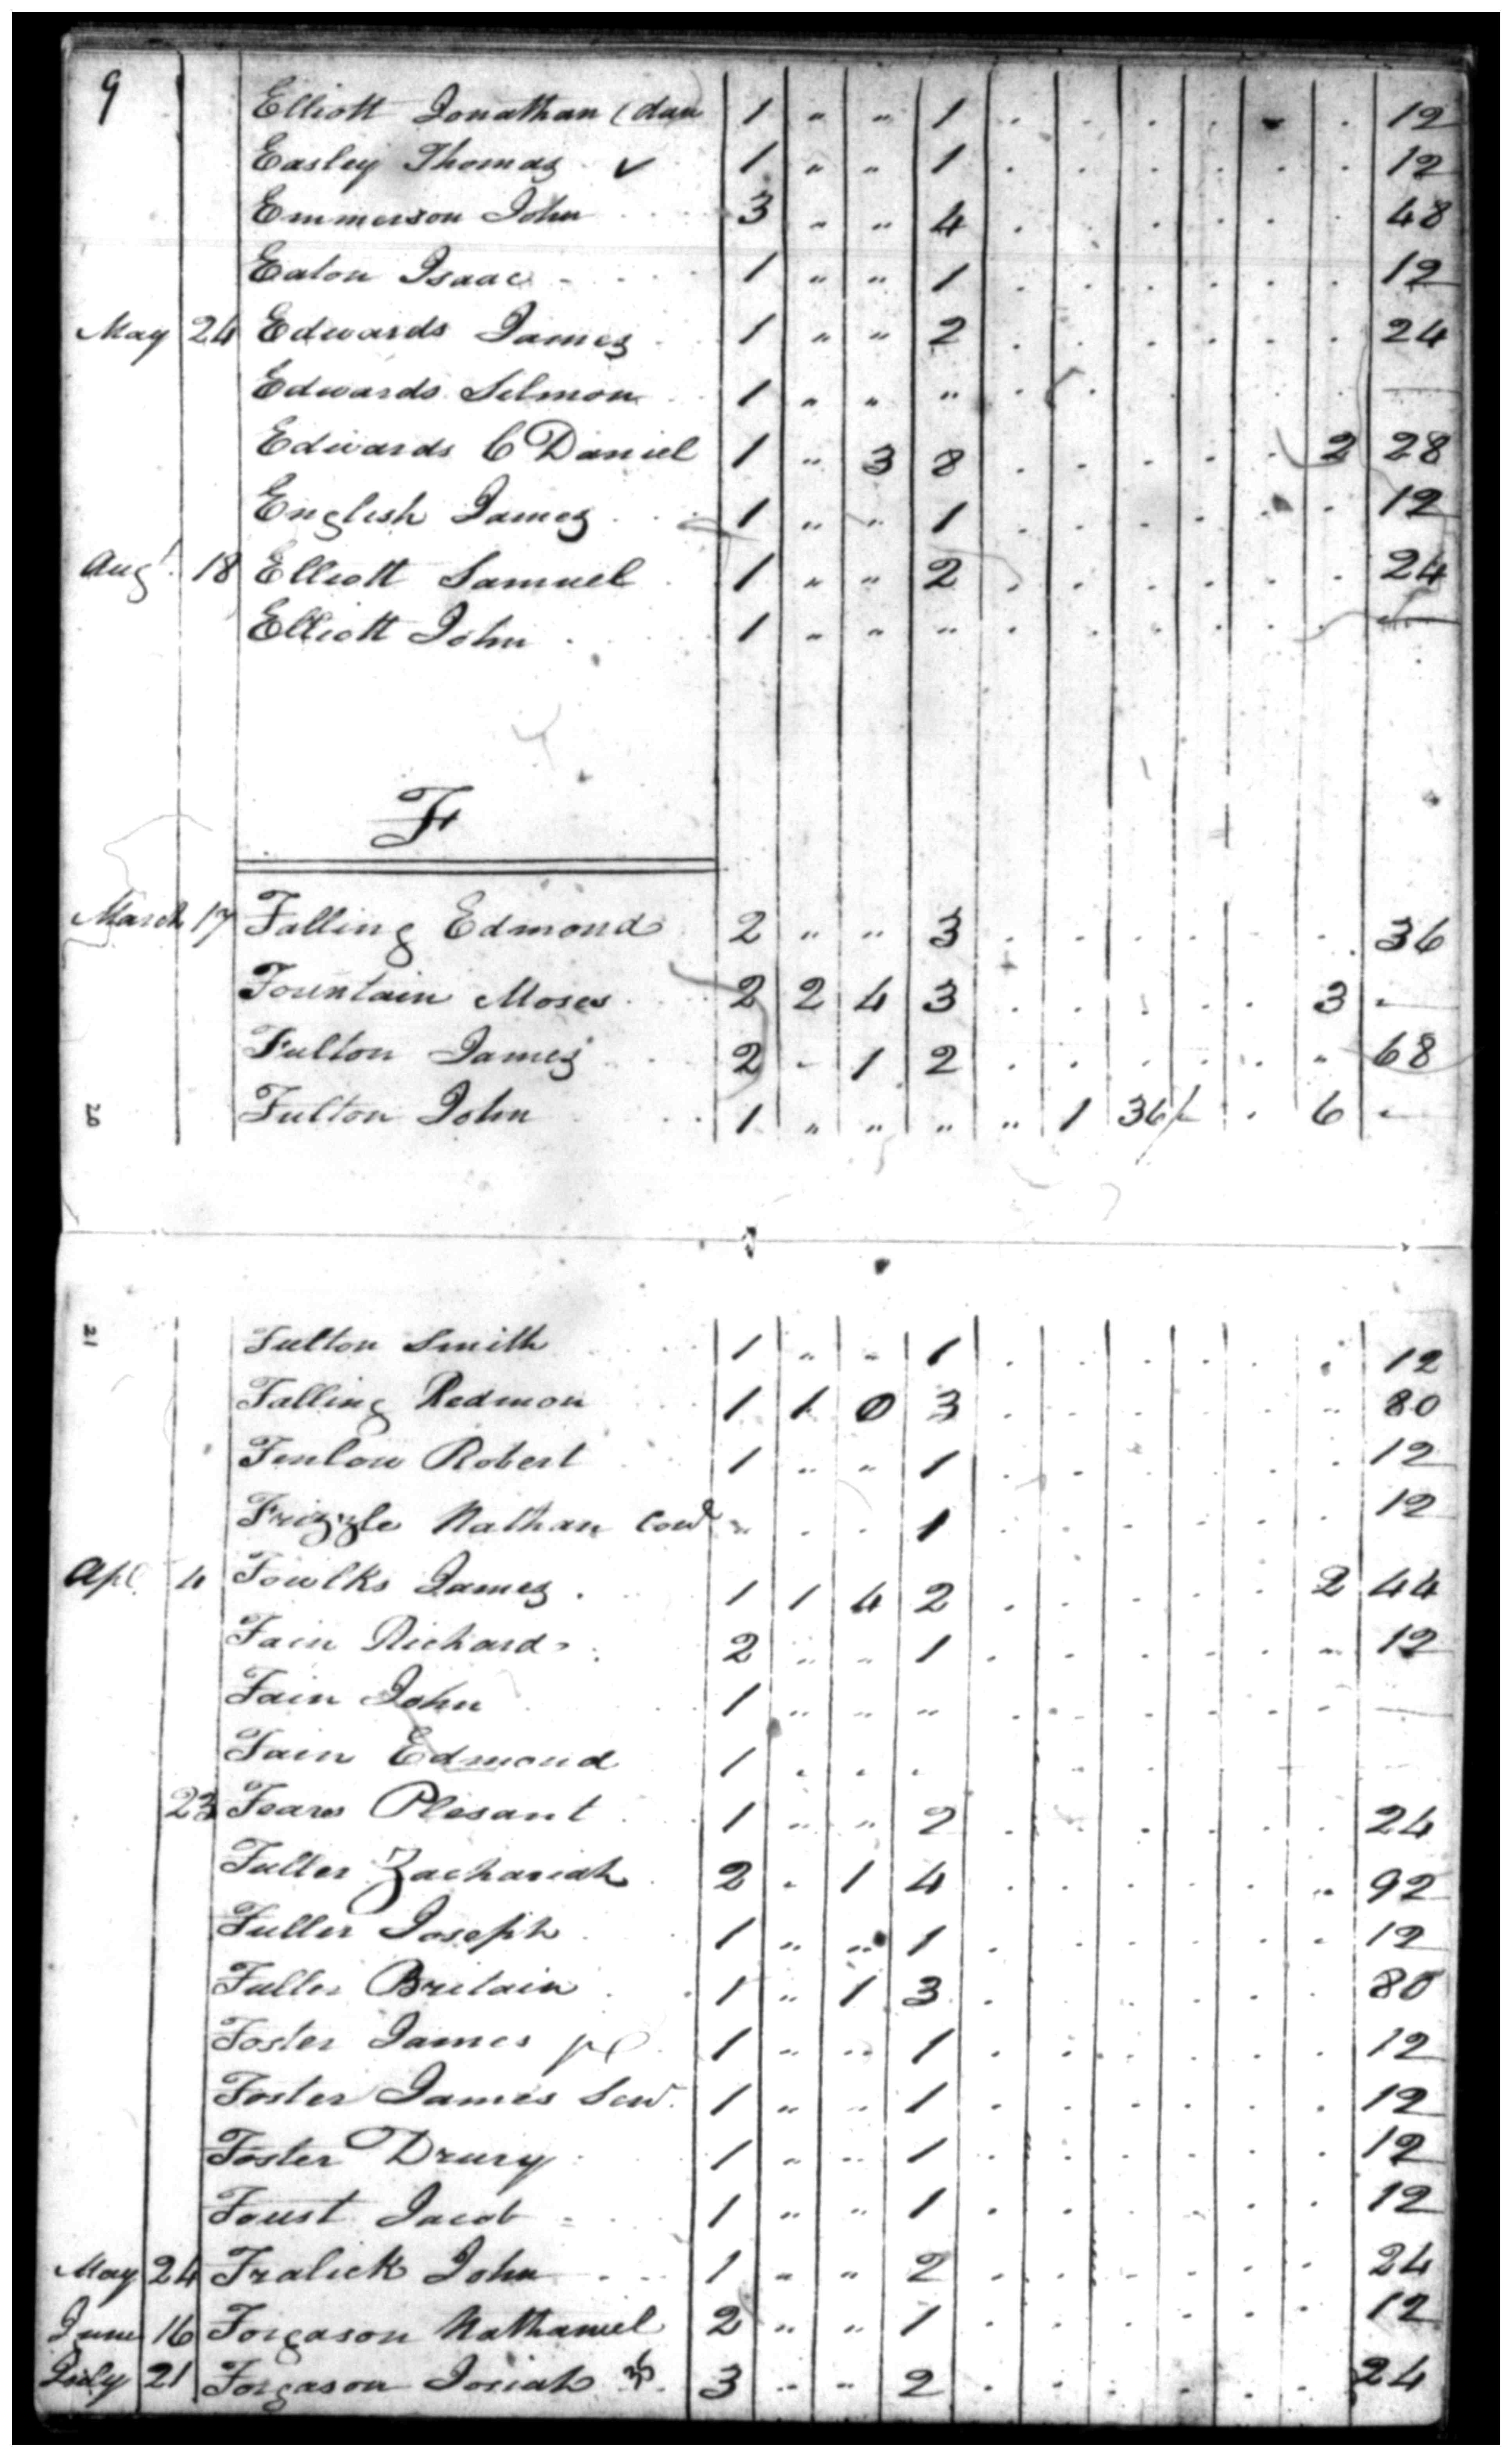 9 Elliott Jonathan (dan 1 " " 1 . . . . . . 12
Easley Thomas ✓ 1 " " 1 . . . . . . 12
Emmerson John 3 " " 4 . . . . . . 48
Eaton Isaac 1 " " 1 . . . . . . 12
May 24 Edwards James 1 " " 2 . . . . . . 24
Edwards Selmon 1 " " " . . . . . . —
Edwards C Daniel 1 " 3 8 . . . . . 2 28
English James 1 " " 1 . . . . . . 12
Augt. 18 Elliott Samuel 1 " " 2 . . . . . . 24
Elliott John 1 " " " . . . . . . —
F
March 17 Falling Edmond 2 " " 3 . . . . . . 36
Fountain Moses 2 2 4 3 . . . . . 3 -
Fulton James 2 - 1 2 . . . . . " 68
20 Fulton John 1 " " " " 1 36/ . 6 -
21 Fulton Smith 1 " " 1 . . . . . . 12
Falling Redmon 1 1 0 3 . . . . . " 80
Fenlow Robert 1 " " 1 . . . . . . 12
Frizzle Nathan " . . 1 . . . . . . 12
Apl. 4 Foulks James 1 1 4 2 . . . . . 2 44
Fain Richard 2 " " 1 . . . . . " 12
Fain John 1 " " " . . . . . . —
Fain Edmond 1 . . . . . . . . .
23 Fears Plesant 1 " " 2 . . . . . . 24
Fuller Zachariah 2 . 1 4 . . . . . " 92
Fuller Joseph 1 " " 1 . . . . . . 12
Fuller Britain 1 " 1 3 . . . . . . 80
Foster James 1 " " 1 . . . . . . 12
Foster James Senr. 1 " " 1 . . . . . . 12
Foster Drury 1 " " 1 . . . . . . 12
Foust Jacob 1 " " 1 . . . . . . 12
May 24 Fralick John 1 " " 2 . . . . . . 24
June 16 Forgason Nathaniel 2 " " 1 . . . . . . 12
July 21 Forgason Josiah 3 " " 2 . . . . . . 24